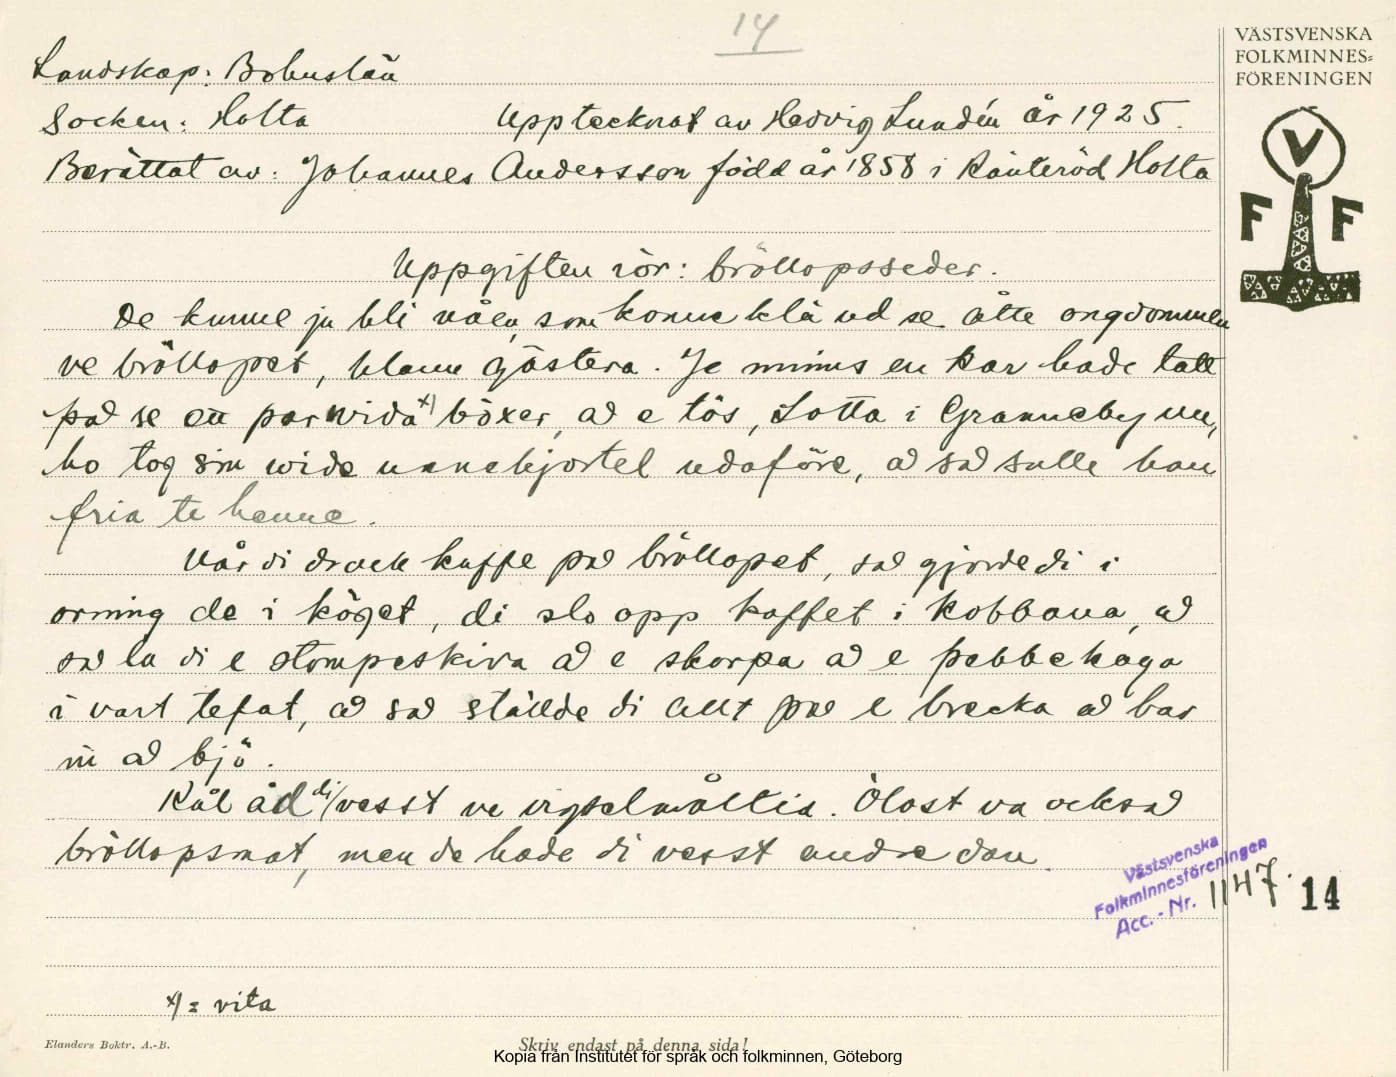 14
VÄSTSVENSKA
FOLKMINNES=
FÖRENINGEN
V
F F
Landskap: Bohuslän
Socken: Holta Upptecknat av Hedvig Lundén år 1925.
Berättat av: Johannes Andersson född år 1858 i Ränteröd Holta
Uppgiften rör: bröllopsseder.
De kunne ju bli våen, som konne klä ud se åtte ongdommen
ve bröllopet, blann gästera. Je minns en kar hade tatt
på se ett par wida x) böxer, å e tös, Lotta i Granneby
ho tog sin wide unnekjortel udaföre, å så sulle han
fria te henne.
Når di drack kaffe på bröllopet, så gjorde di i
orning de i köget, di slo opp kaffet i kobbana, å
så la di e stompeskiva å e skorpa å e pebbekaga
i vart tefat, å så ställde di allt på e brecka å bar
in å bjö.
Kål åd di/ vesst ve vigselmåltia. Ölost va också
bröllopsmat, men de hade di vesst andre dan
Västsvenska
Folkminnesföreningen
Acc. - Nr. 1147. 14
x) = vita
Elanders Boktr. A.-B. Skriv endast på denna sida!
Kopia från Institutet för språk och folkminnen, Göteborg